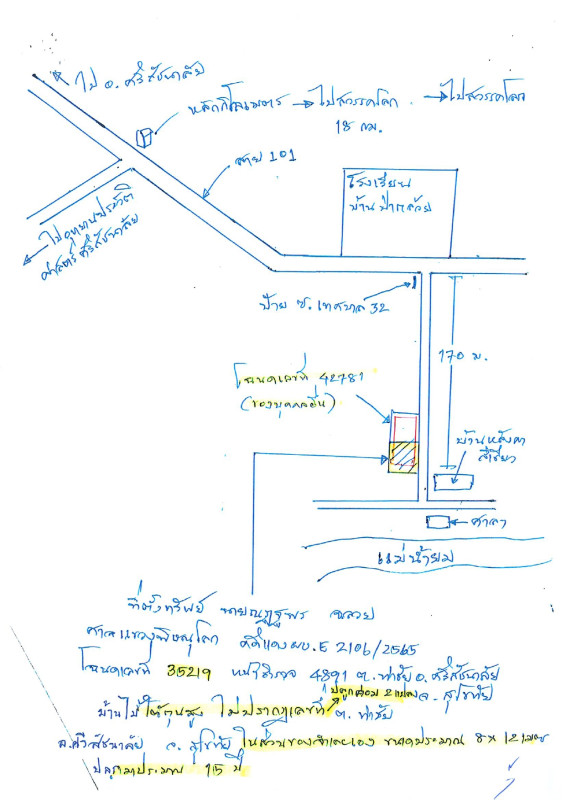 ไป อ. ศรีสัชนาลัย
หลักกิโลเมตร → ไปสวรรคโลก → ไปสวรรคโลก
18 กม.
สาย 101
โรงเรียน
บ้านป่ากล้วย
ไปอุทยานประวัติ
ศาสตร์ศรีสัชนาลัย
ป้าย ซ. เทศบาล 32
170 ม.
โฉนดเลขที่ 42781
(ของบุคคลอื่น)
บ้านหลังคา
สีเขียว
ศาลา
แม่น้ำยม
ที่ตั้งทรัพย์ นายณฏฐพร
ศาลแขวงพิษณุโลก คดีแดง ผบ.E 2106/2565
โฉนดเลขที่ 35219 หน้าสำรวจ 4891 ต. ท่าชัย อ. ศรีสัชนาลัย
ปลูกคร่อม 2 แปลง จ. สุโขทัย
บ้านไม้ใต้ถุนสูง ไม่ปรากฏเลขที่ ต. ท่าชัย
อ.ศรีสัชนาลัย จ. สุโขทัย ในส่วนของจำเลยเอง ขนาดประมาณ 8 x 12 เมตร
ปลูกมาประมาณ 15 ปี